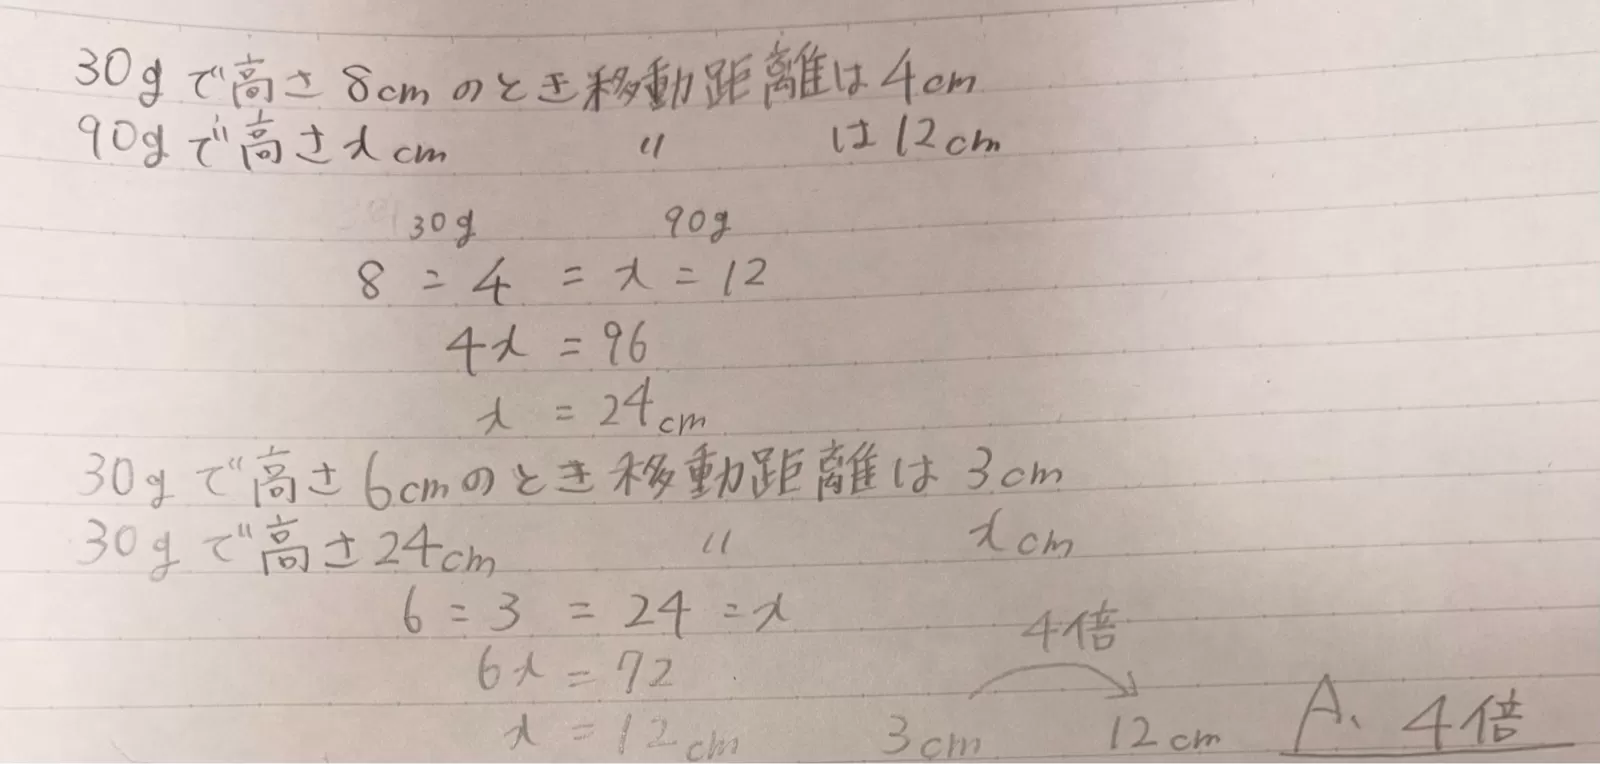 30gで高さ8cmのとき移動距離は4cm
90gで高さxcm 〃 は12cm
30g 90g
8 = 4 = x = 12
4x = 96
x = 24cm
30gで高さ6cmのとき移動距離は3cm
30gで高さ24cm 〃 xcm
6 = 3 = 24 = x
6x = 72
x = 12cm
4倍
3cm 12cm
A、4倍